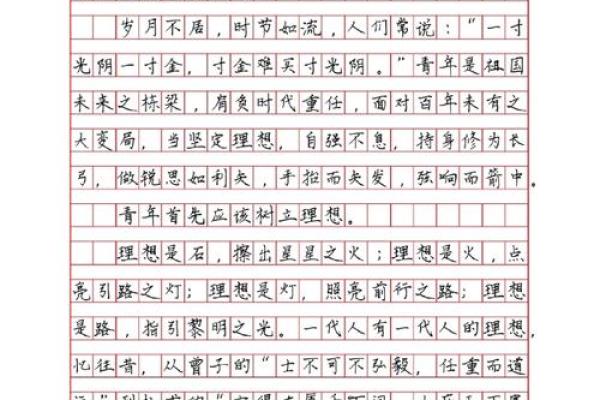 岁月不居，时节如流，人们常说：“一寸
光阴一寸金，寸金难买寸光阴。”青年是祖国
未来之栋梁，肩负时代重任，面对百年未有之
大变局，当坚定理想，自强不息，持身修为长
弓，做锐思如利矢，手招而矢发，弦响而箭中。
青年首先应该树立理想。
理想是石，擦出星星之火；理想是火，点
亮引路之灯；理想是灯，照亮前行之路；理想
是路，指引黎明之光。一代人有一代人的理想，
忆往昔，从曾子的“士不可不弘毅，任重而道